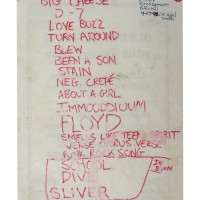 BIG CHEESE
D-7
LOVE BUZZ
TURN AROUND
BLEW
BEEN A SON
STAIN
NEG. CREPE
ABOUT A GIRL
IMMODIUUM
FLOYD
SMELLS LIKE TEEN SPIRIT
VERSE CHORUS VERSE
PUNK ROCK SONG
SCHOOL
DIVE
SLIVER
IN